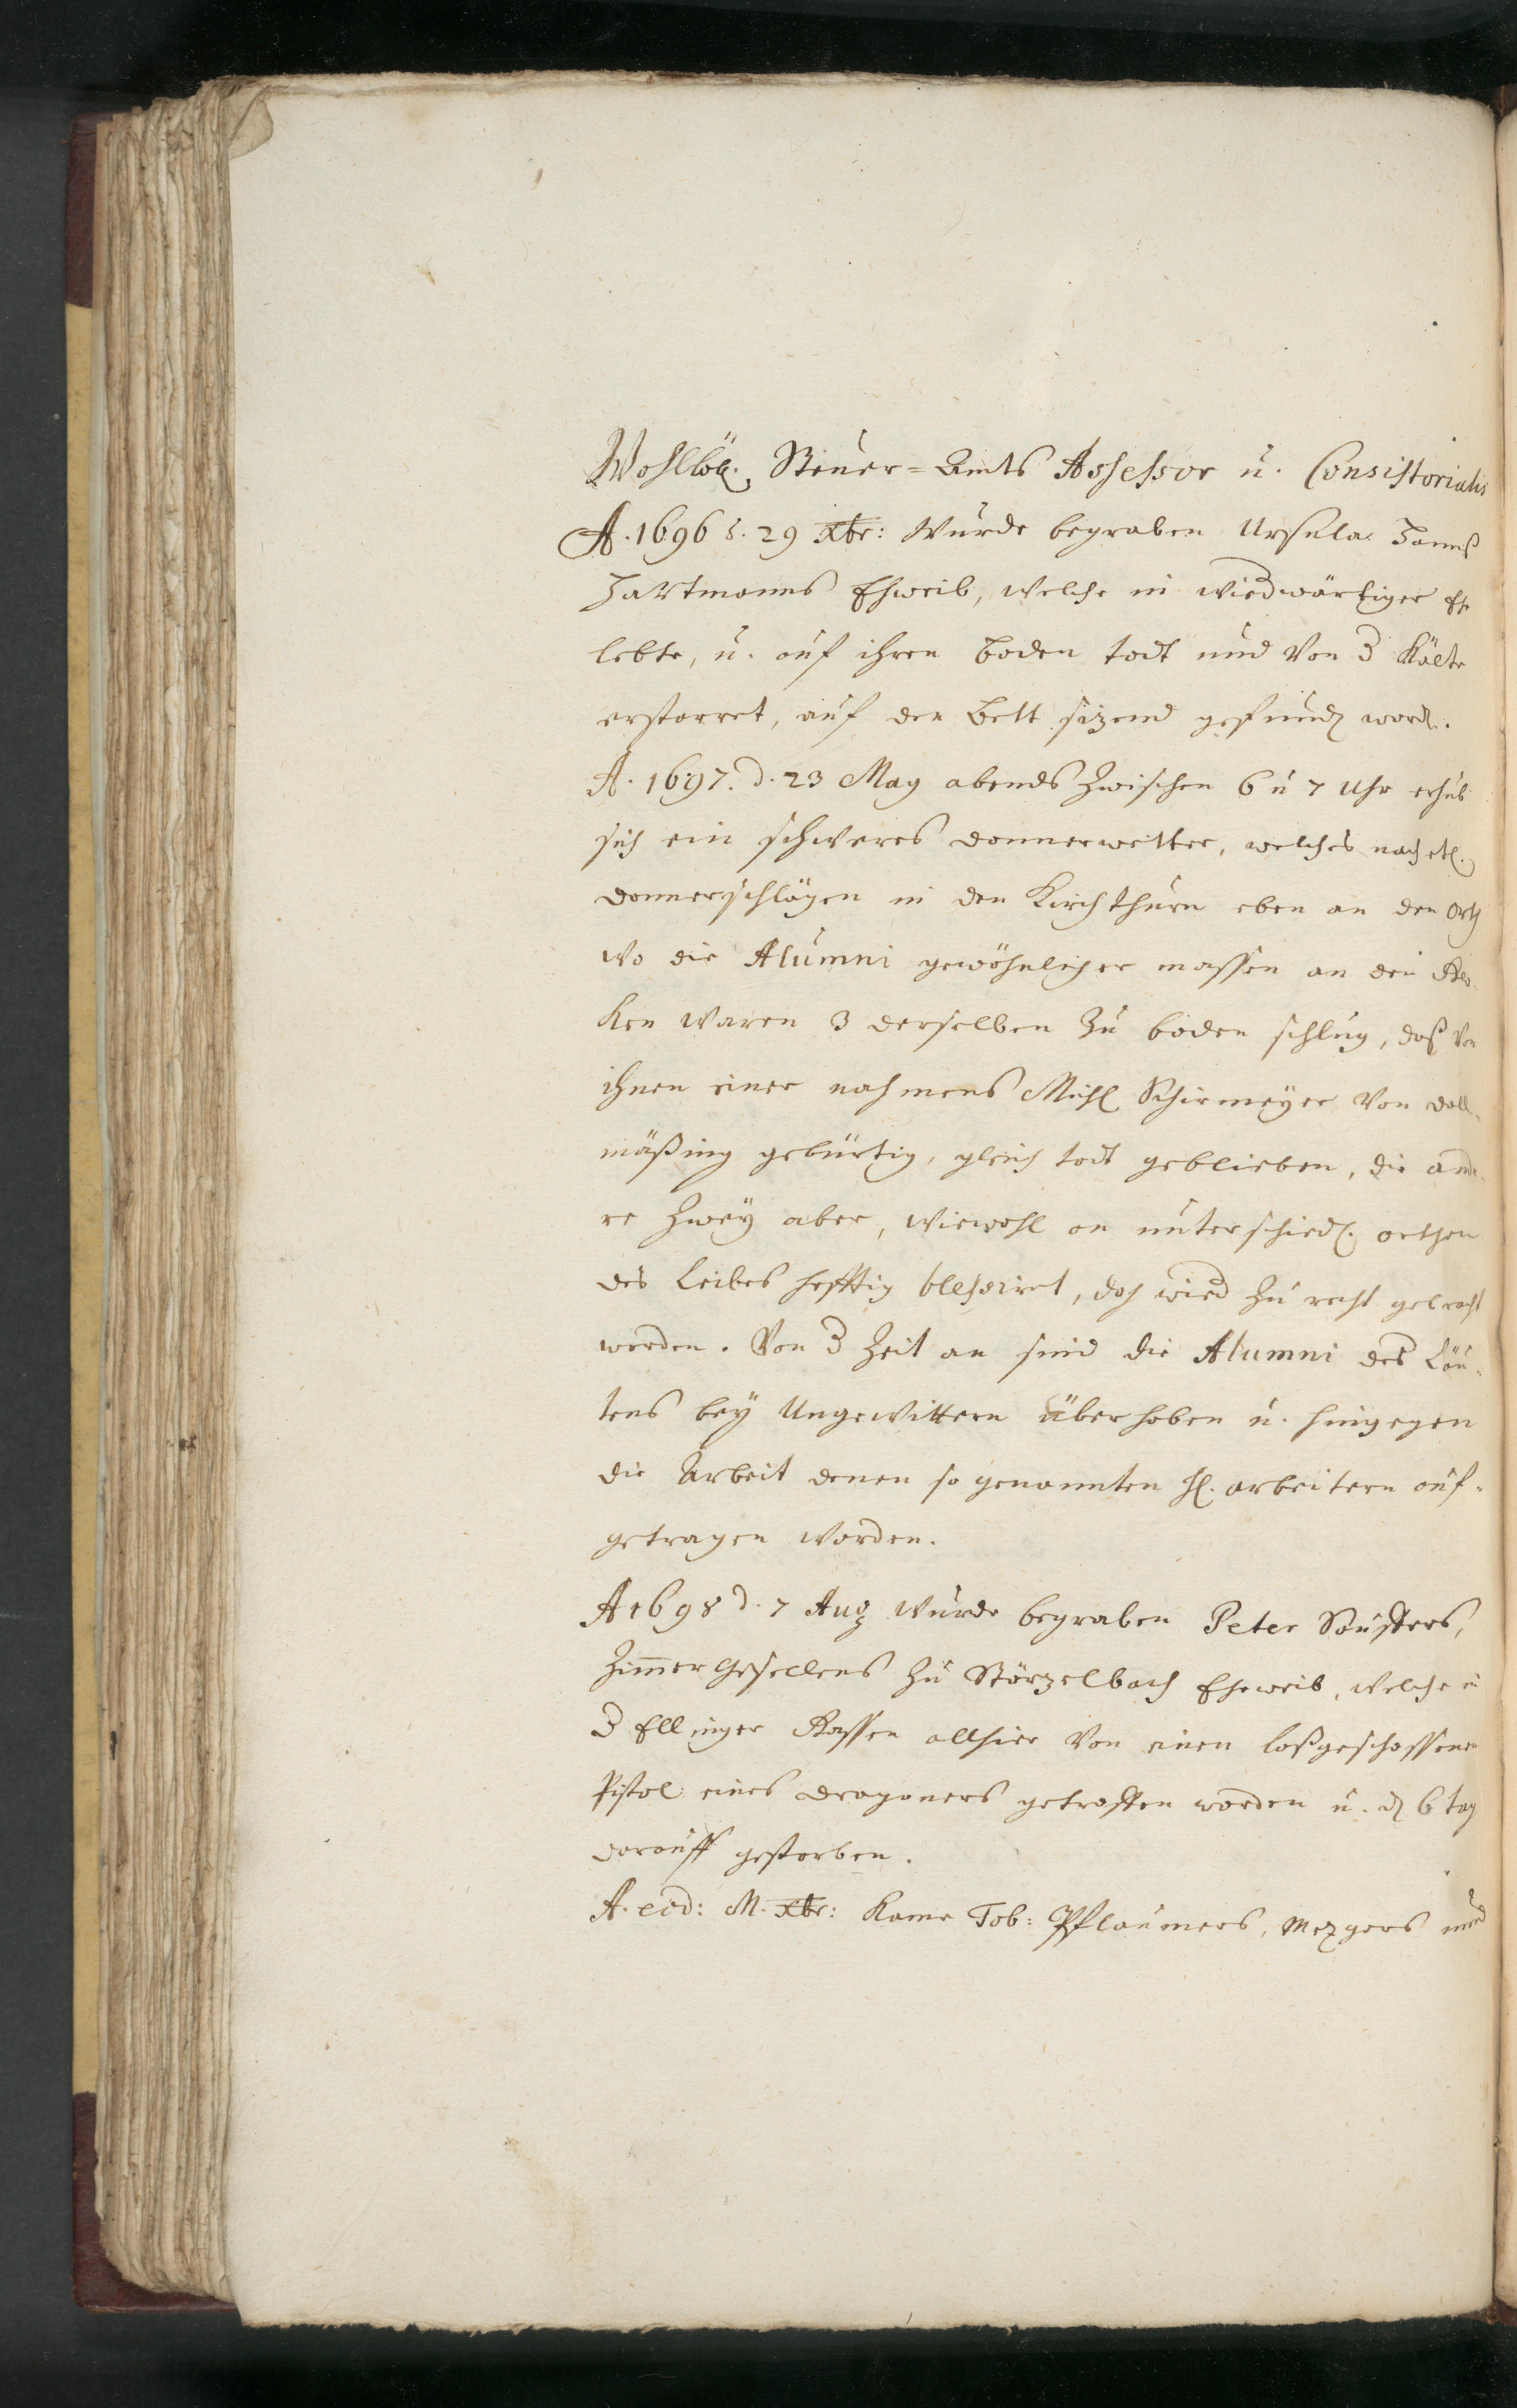 Wohllöbl. Steuer=Amts Assessor u. Consistorialis
A. 1696 d. 29 Xbr: wurde begraben Ursula Hannß
Hartmanns Eheweib, welche in wiederwärtiger Eh
lebte, u. auf ihren Boden todt und von der Kälte
erstarret, auf den Bett sizend gefunden word.
A. 1697. d. 23 May abends zwischen 6 u 7 Uhr erhub
sich ein schweres Donnerwetter, welches nach etl.
Donnerschlägen in den Kirchthurn eben an den Orth
wo die Alumni gewöhnlicher massen an den Glo-
ken waren 3 derselben zu boden schlug, daß von
ihnen einer nahmens Michl Schirmeyer von Doll-
mäßing gebürtig, gleich todt geblieben, die ande-
re zwey aber, wiewohl an unterschiedl. orthen
des Leibes hefftig blessiret, doch wieder zu recht gebracht
worden. Von der Zeit an sind die Alumni des Läu-
tens bey Ungewittern überhoben u. hingegen
die Arbeit denen so genannten hl. arbeitern auf-
getragen worden.
A 1698 d. 7 Aug wurde begraben Peter
Zimmer Gesellens zu Störzelbach Eheweib, welche in
der Ellinger Gassen allhier von einen loßgeschossenen
Pistol eines Dragoners getroffen worden u. den 6 tag
darauff gestorben.
A. eod: M. Xbr: kame Tob: Pflaumers, Mezgers und